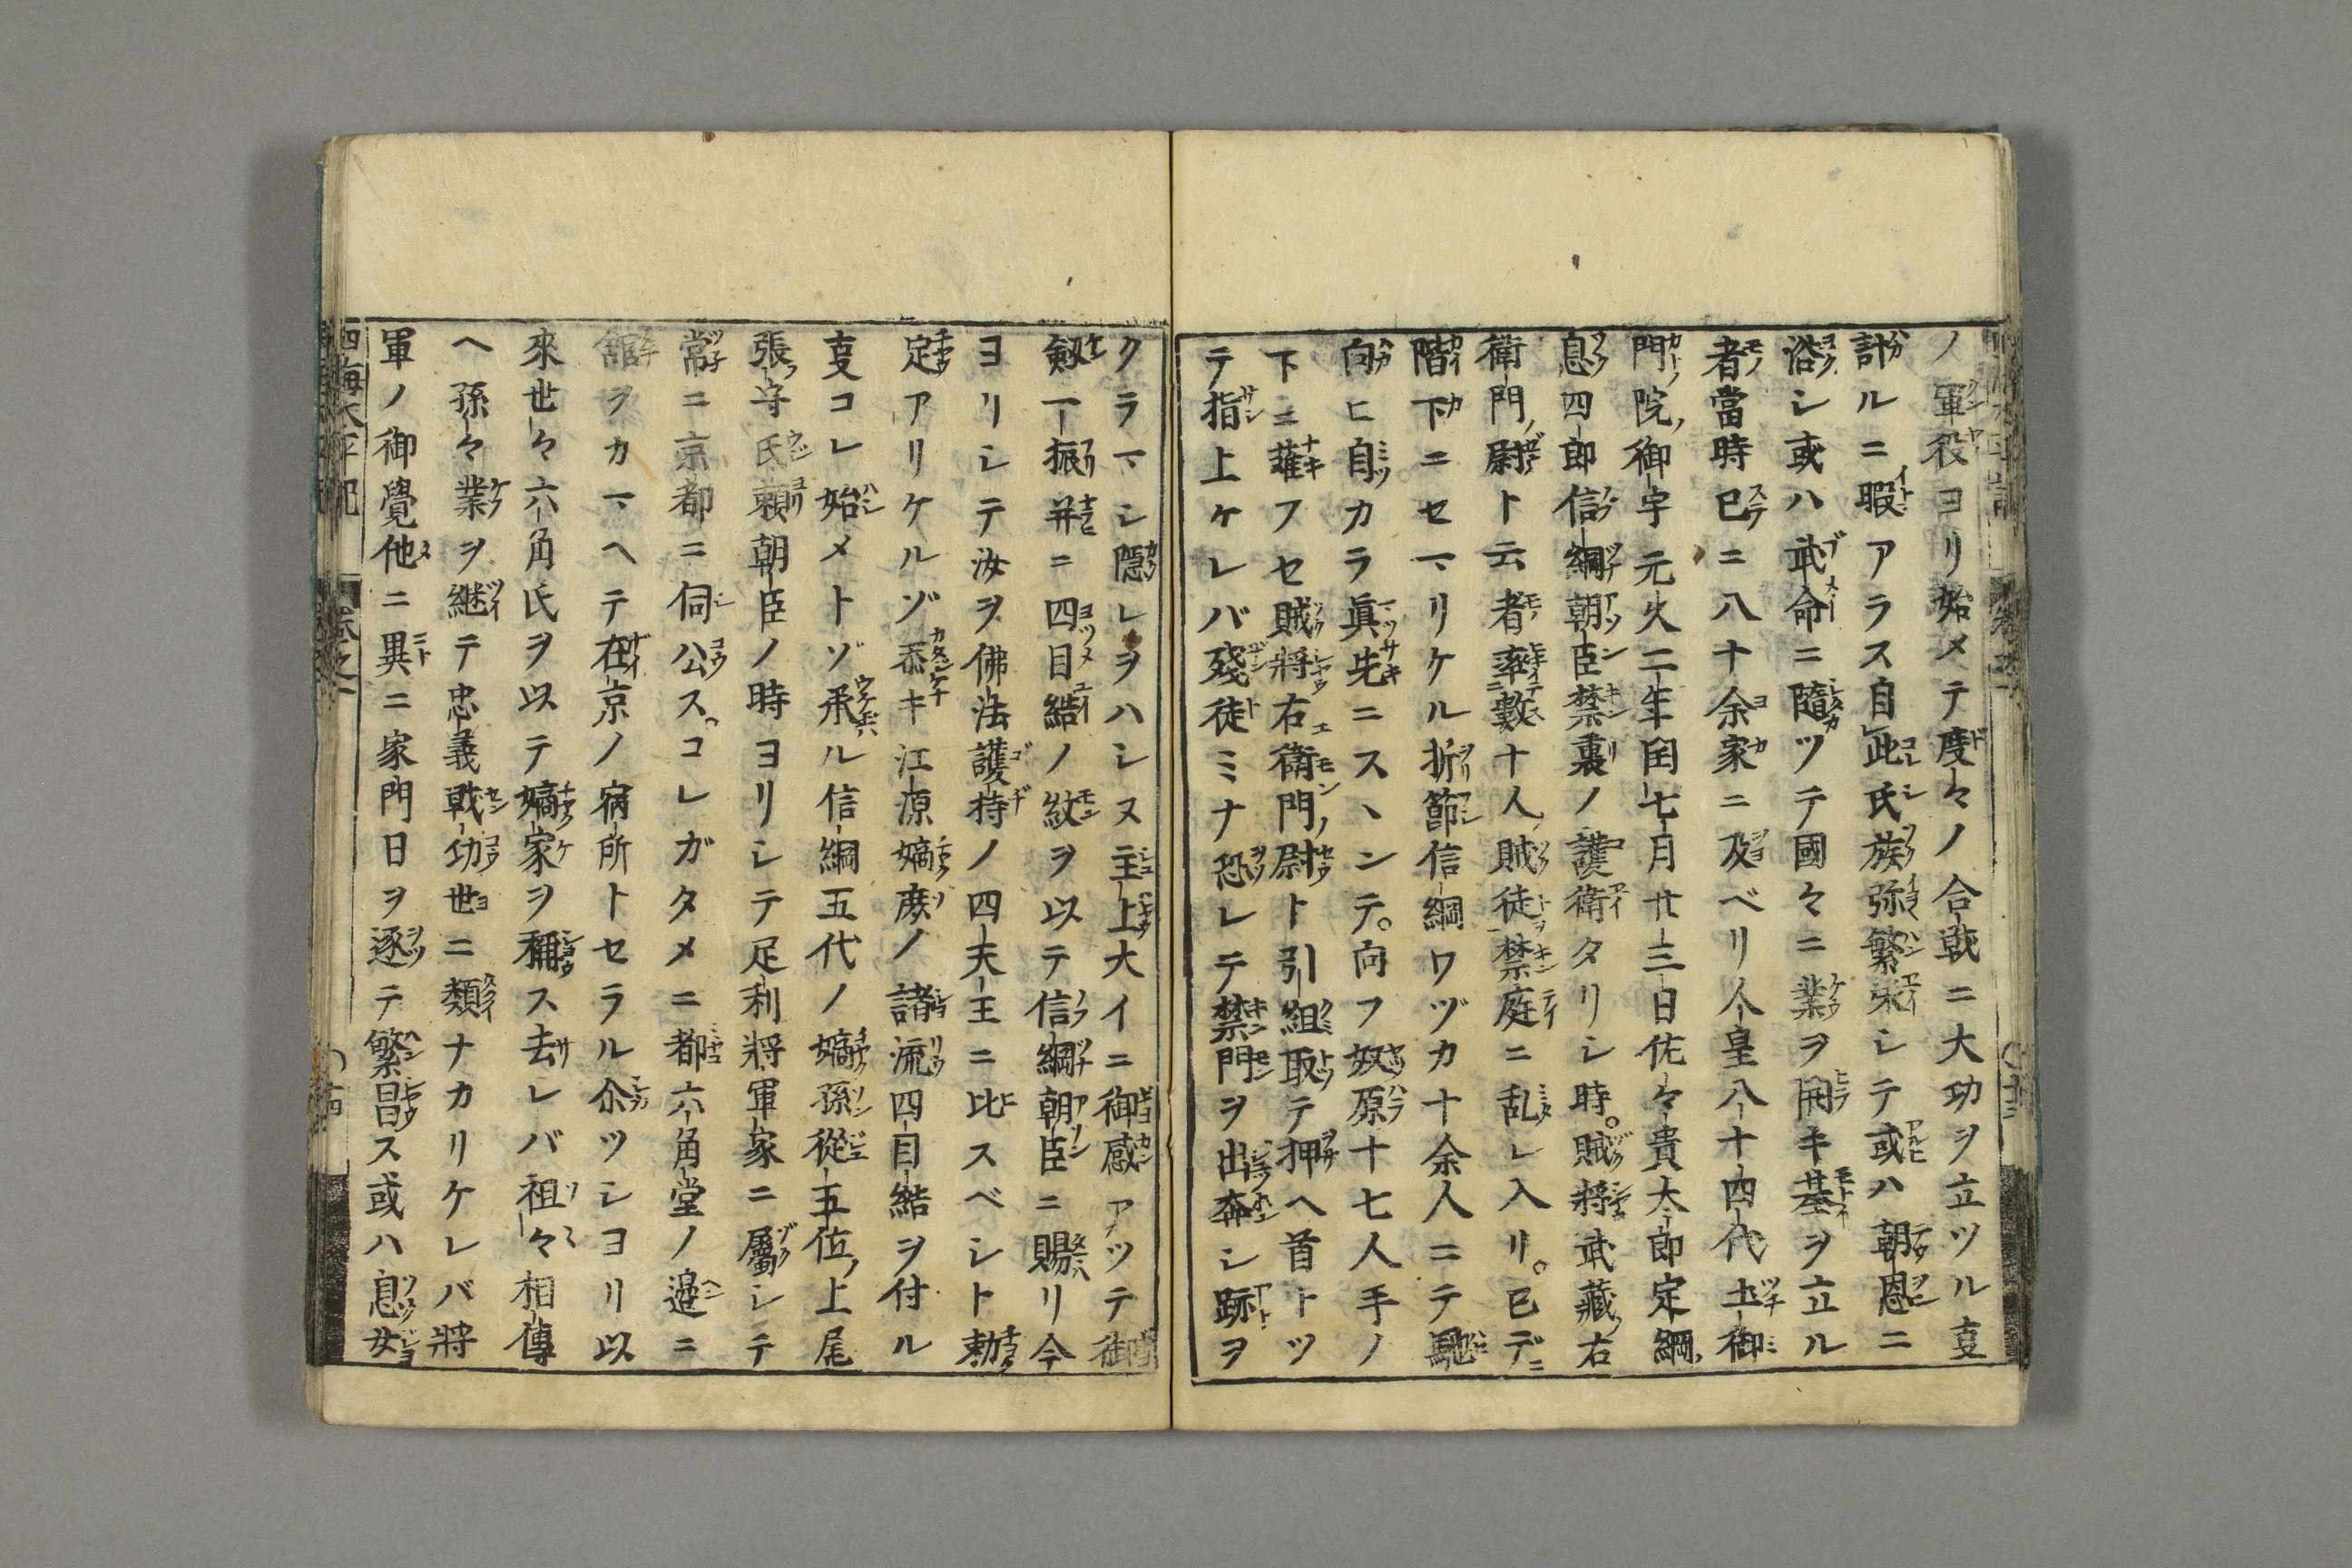 ノ軍役ヨリ始メテ度々ノ合戦ニ大功ヲ立ツル亊
計ルニ暇アラス自此氏族弥繁栄シテ或ハ朝恩ニ
浴シ或ハ武命ニ隨ツテ國々ニ業ヲ開キ基ヲ立ル
者當時已ニ八十余家ニ及ベリ人皇八十四代土御
門院御宇元久二年閏七月廿三日佐々貴太郎定綱
息四郎信綱朝臣禁裏ノ護衛タリシ時。賊將武藏右
衛門尉ト云者率數十人賊徒禁庭ニ乱レ入リ。已デニ
階下ニセマリケル折節信綱ワヅカ十余人ニテ馳
向ヒ自カラ眞先ニスヽンテ。向フ奴原十七人手ノ
下ニ薙フセ賊將右衛門尉ト引組取テ押ヘ首トツ
テ指上ケレバ殘徒ミナ恐レテ禁門ヲ出奔シ跡ヲ
クラマシ隱レヲハシヌ主上大イニ御感アツテ御
剱一振并ニ四目結ノ紋ヲ以テ信綱朝臣ニ賜リ今
ヨリシテ汝ヲ佛法護持ノ四天王ニ比スベシト勅
定アリケルゾ忝キ江源嫡庶ノ諸流四目結ヲ付ル
亊コレ始メトゾ承ル信綱五代ノ嫡孫從五位上尾
張守氏頼朝臣ノ時ヨリシテ足利將軍家ニ屬シテ
常ニ京都ニ伺公ス。コレガタメニ都六角堂ノ邉ニ
舘ヲカマヘテ在京ノ宿所トセラル尒ツシヨリ以
來世々六角氏ヲ以テ嫡家ヲ稱ス去レバ祖々相傳
ヘ孫々業ヲ継テ忠義戦功世ニ類ナカリケレバ將
軍ノ御覺他ニ異ニ家門日ヲ逐テ繁昌ス或ハ息女
四海太平記
卷之一
○十四